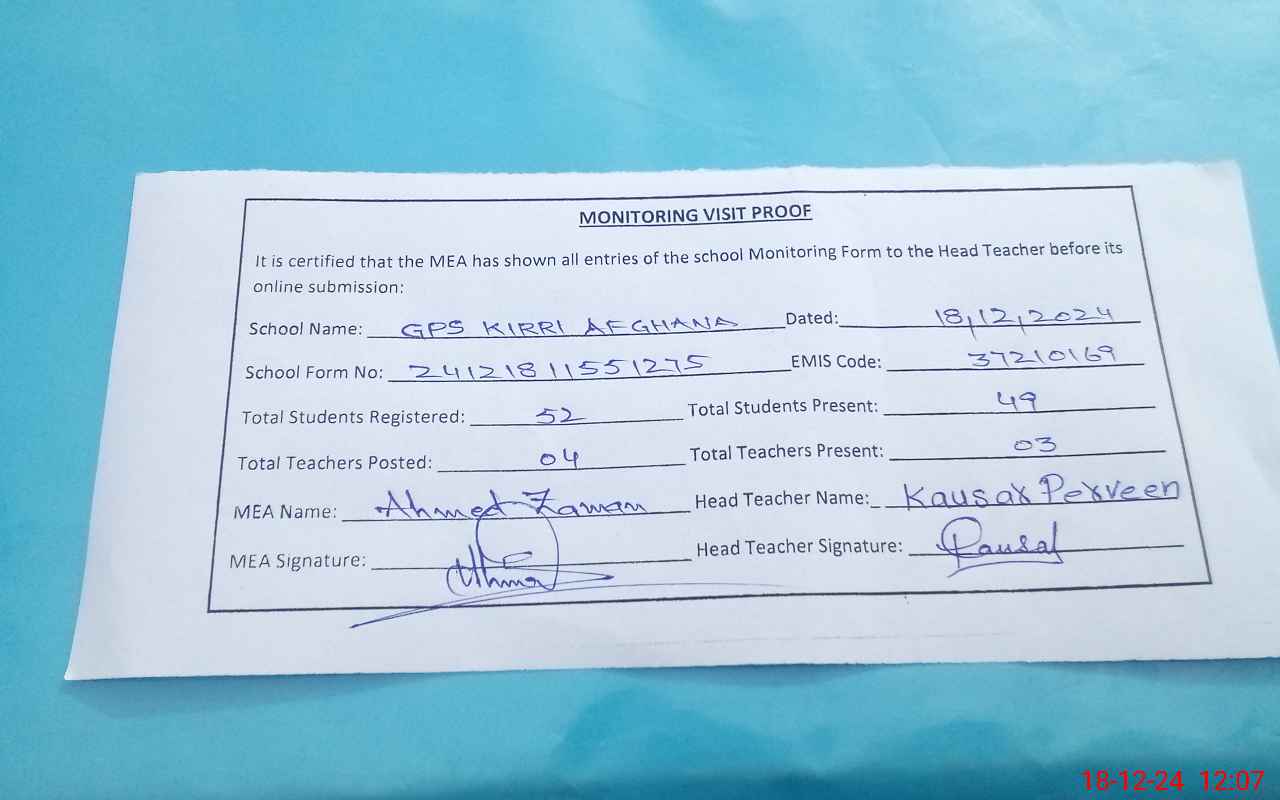 MONITORING VISIT PROOF
It is certified that the MEA has shown all entries of the school Monitoring Form to the Head Teacher before its
online submission:
School Name: GPS KIRRI AFGHANA Dated: 18,12,2024
School Form No: 24121811551275 EMIS Code: 37210169
Total Students Registered: 52 Total Students Present: 49
Total Teachers Posted: 04 Total Teachers Present: 03
MEA Name: Ahmed Zaman Head Teacher Name: Kausar Perveen
MEA Signature: Head Teacher Signature: Kausar
18-12-24 12:07